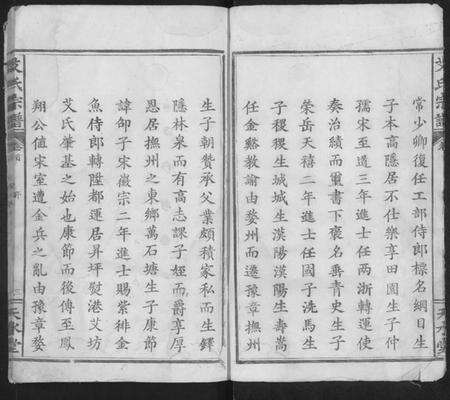 艾氏宗譜
常少卿復任工部侍郎標名綱目生
子本高隱居不仕樂享田園生子仲
孺宋至道三年進士任兩浙轉運使
奏治績而璽書下褒名垂青史生子
榮岳天禧二年進士任國子洗馬生
子稷稷生城城生漢陽漢陽生壽嵩
任金谿教諭由婺州而遷豫章撫州
天水堂
生子朝贊承父業頗積家私而生鐸
隱林泉而有高志課子姪而爵享厚
恩居撫州之東鄉萬石塘生子康節
諱邵子宋徽宗二年進士賜紫緋金
魚侍郎轉陞都運居昇坪熨港艾坊
艾氏肇基之始也康節而後傳至鳳
翔公值宋室遭金兵之亂由豫章婺
艾氏宗譜
天水堂